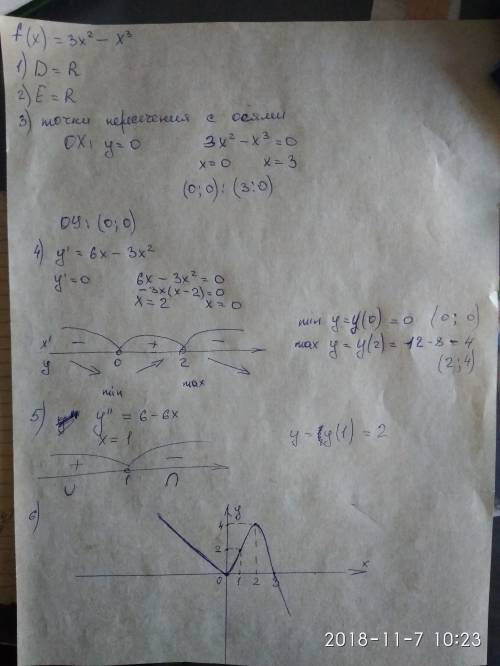 f(x) = 3x² - x³
1) D = R
2) E = R
3) точки пересечения с осями
OX: y=0 3x² - x³ = 0
x=0 x=3
(0;0): (3:0)
OY: (0;0)
4) y' = 6x - 3x²
y'=0 6x - 3x² = 0
-3x(x-2)=0
x=2 x=0
min y = y(0) = 0 (0; 0)
max y = y(2) = 12-8 = 4
(2;4)
x' - 0 + 2 -
y
min max
5) y'' = 6-6x
x=1
y = y(1) = 2
+ 1 -
∪ ∩
6)
y
4
2
0 1 2 3 x
2018-11-7 10:23